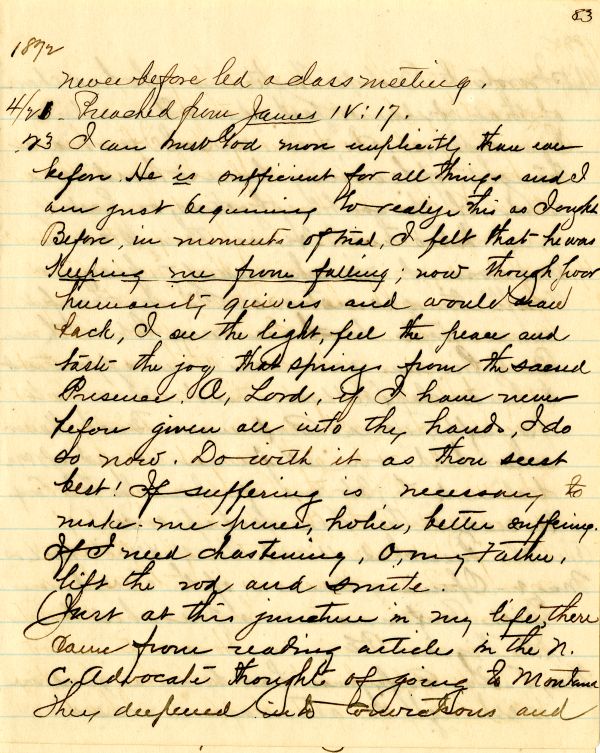 83
1872
never before led a class meeting.
4/21. Preached from James IV:17.
23 I can trust God more implicitly than ever
before. He is sufficient for all things and I
am just beginning to realize this as I ought.
Before, in moments of trial, I felt that he was
keeping me from falling; now though poor
humanity quivers and would draw
back, I see the light, feel the peace and
taste the joy that springs from the sacred
Presence. O, Lord, if I have never
before given all into thy hands, I do
so now. Do with it as thou seest
best! If suffering is necessary to
make me purer, holier, better suffering.
If I need chastening, O, my Father,
lift the rod and smite.
Just at this juncture in my life, there
came from reading article in the N.
C. Advocate thought of going to Montana
They deepened into convictions and